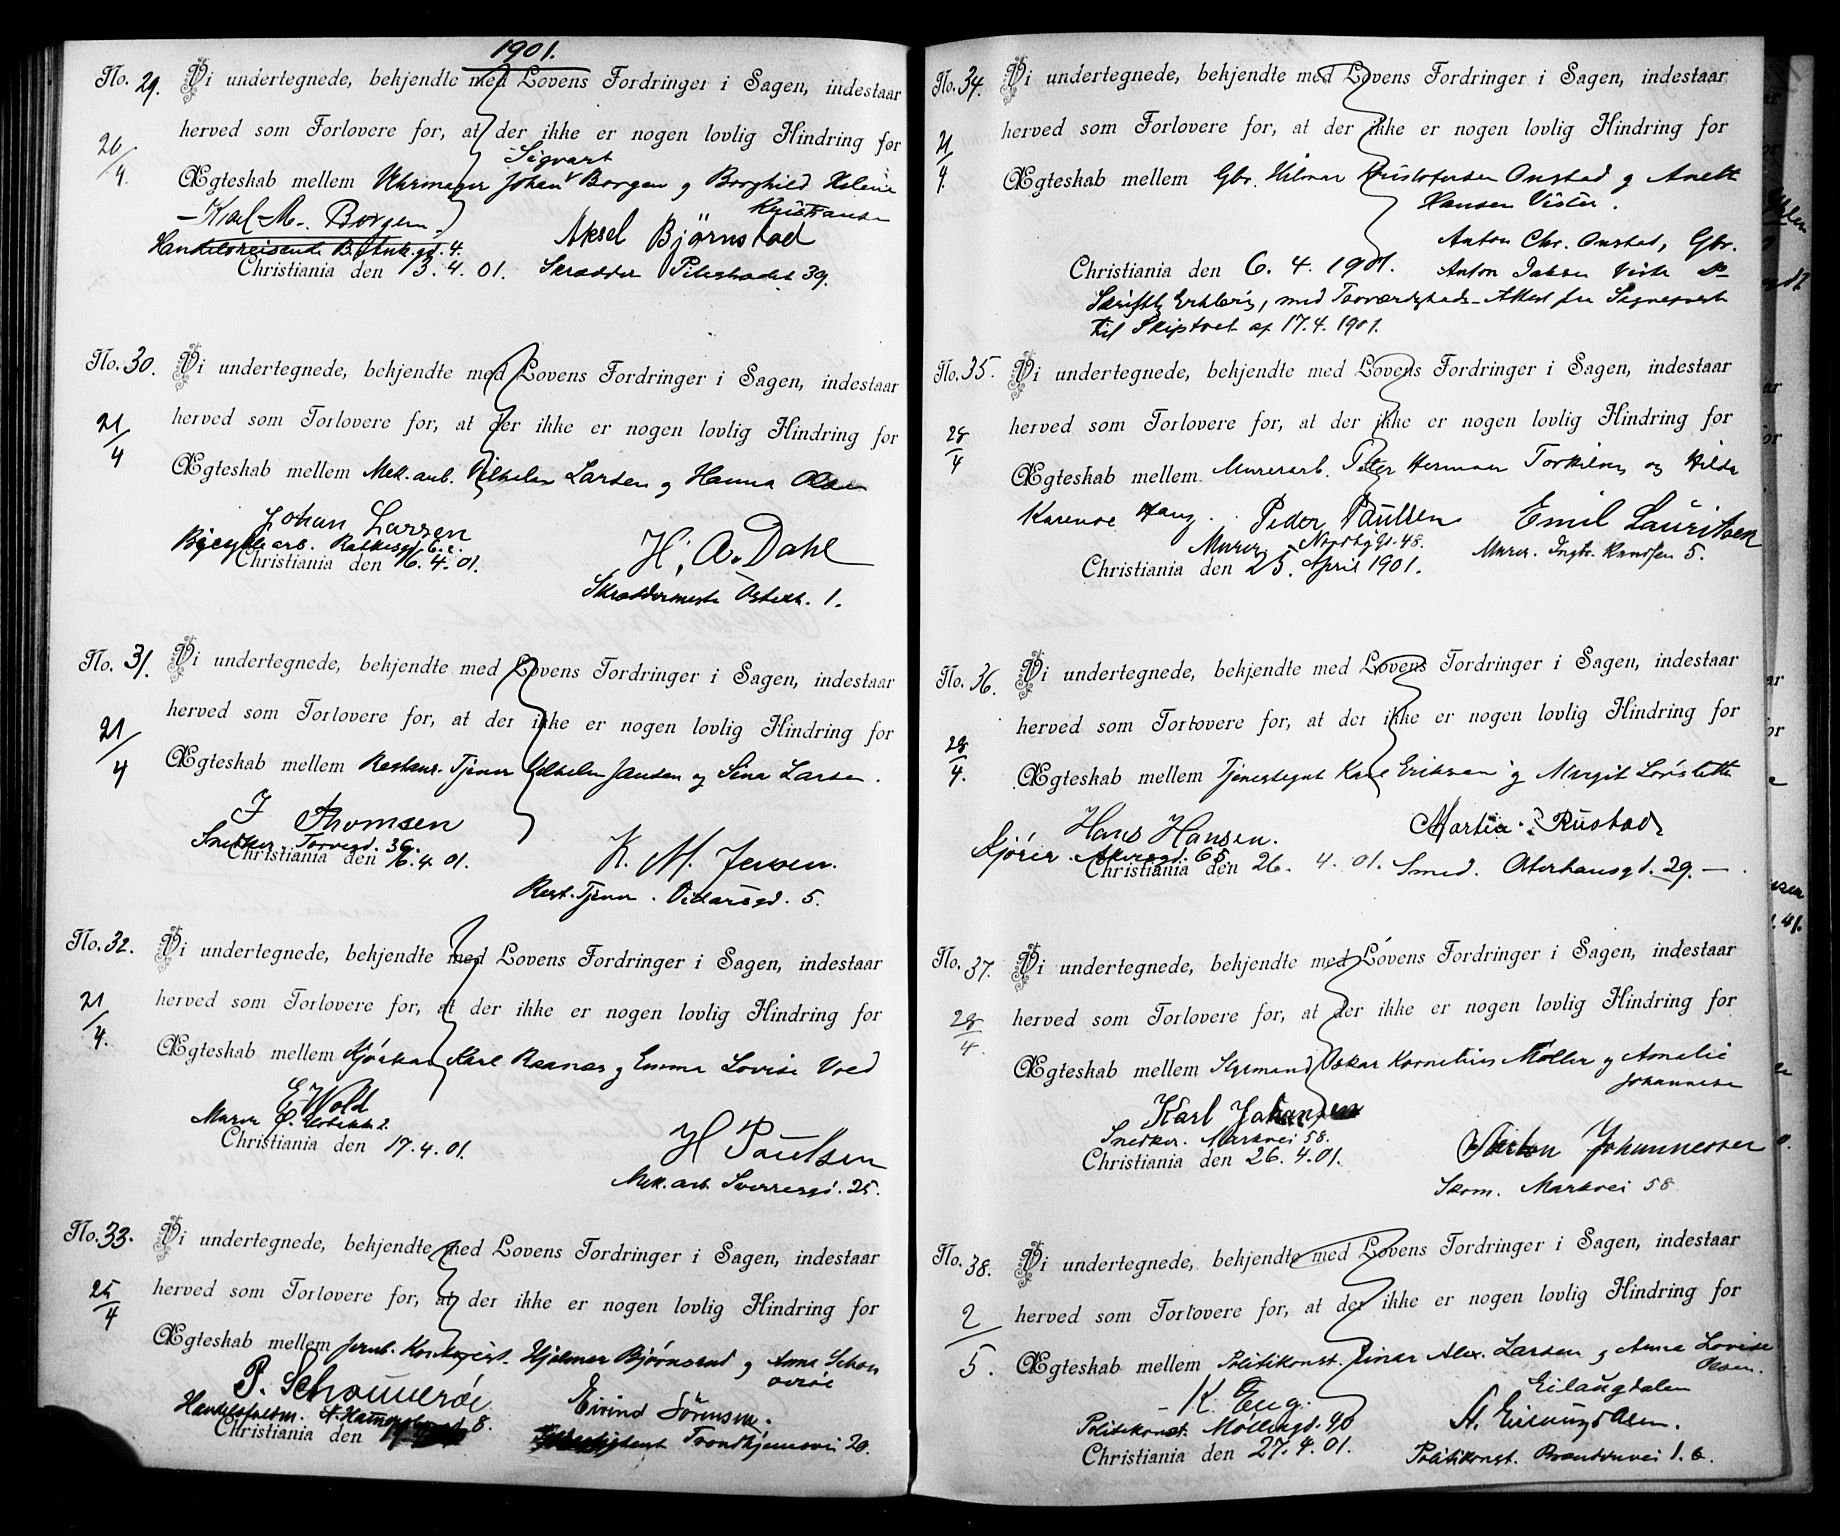 1901.
No. 29. Vi undertegnede, bekjendte med Lovens Fordringer i Sagen, indestaar
20/4. herved som Forlovere for, at der ikke er nogen lovlig Hindring for
Sigvart
Ægteskab mellem Uhrmager Johan Borgen og Borghild Helene
Kristiansen
Karl M. Borgen. Aksel Bjørnstad
Handelsreisende 4.
Christiania den 13.4.01. Skrædder Pilestrædet 39.
No. 30. Vi undertegnede, bekjendte med Lovens Fordringer i Sagen, indestaar
21/4 herved som Forlovere for, at der ikke er nogen lovlig Hindring for
Ægteskab mellem Mek. arb. Vilhelm Larsen og Hanna Olsen
Johan Larsen H. A. Dahl
arb. 6.
Christiania den 16.4.01.
Skræddermester 1.
No. 31. Vi undertegnede, bekjendte med Lovens Fordringer i Sagen, indestaar
21/4 herved som Forlovere for, at der ikke er nogen lovlig Hindring for
Ægteskab mellem Restaur. Tjener Vilhelm Jansen og Sina Larsen.
J Thomsen
Snedker. Torvegd. 36.
Christiania den 16.4.01. K. M. Jensen.
Rest. Tjener. Vidarsgd. 5.
No. 32. Vi undertegnede, bekjendte med Lovens Fordringer i Sagen, indestaar
21/4. herved som Forlovere for, at der ikke er nogen lovlig Hindring for
Ægteskab mellem Karl Raanæs og Emma Lovise Vold
E Wold
Murer
Christiania den 17.4.01. H Paulsen
Mek. arb. Sverresgd. 25.
No. 33. Vi undertegnede, bekjendte med Lovens Fordringer i Sagen, indestaar
25/4 herved som Forlovere for, at der ikke er nogen lovlig Hindring for
Ægteskab mellem Jernb. Kontorist. Hjalmar Bjørnsrud og Anna Schou
P. Schouverøe Eivind Sørensen.
8.
Christiania den Trondhjemsvei 20.
No. 34. Vi undertegnede, bekjendte med Lovens Fordringer i Sagen, indestaar
21/4. herved som Forlovere for, at der ikke er nogen lovlig Hindring for
Ægteskab mellem Gbr. Hilmar Kristofersen Onstad og Anette
Hansen Vister.
Anton Chr. Onstad, Gbr.
Christiania den 6.4.1901. Anton Do
Skriftlig Erklæring, med Troværdigheds-Attest fra Sognepresten
til Skiptvet af 17.4.1901.
No. 35. Vi undertegnede, bekjendte med Lovens Fordringer i Sagen, indestaar
28/4 herved som Forlovere for, at der ikke er nogen lovlig Hindring for
Ægteskab mellem Murerarb. Peter Herman Torkilsen og Hilda
Karense Haug. Peder Paulsen Emil Lauritsen
Murer Nordbygd. 48. Murer. Ingbr. Knudsen 5.
Christiania den 25. April 1901.
No. 36. Vi undertegnede, bekjendte med Lovens Fordringer i Sagen, indestaar
28/4. herved som Forlovere for, at der ikke er nogen lovlig Hindring for
Ægteskab mellem Karl Eriksen og Margit
Hans Hansen. Martin Rustad
Kjører. Akersgd. 65.
Christiania den 26. 4. 01. Smed. 29.
No. 37. Vi undertegnede, bekjendte med Lovens Fordringer i Sagen, indestaar
28/4. herved som Forlovere for, at der ikke er nogen lovlig Hindring for
Ægteskab mellem Styrmand Oskar Kornelius Møller og Amalie
Johannesen
Karl Johansen
Snedker. Markvei 58. Johannessen
Christiania den 26.4.01.
Skom. Markvei 58
No. 38. Vi undertegnede, bekjendte med Lovens Fordringer i Sagen, indestaar
2/5. herved som Forlovere for, at der ikke er nogen lovlig Hindring for
Ægteskab mellem Politikonst. Einar Alex. Larsen og Anna Lovise
Olsen.
K. Eng. Eilaugdalen
Politikonst. Møllergd. 40
Christiania den 27.4.01. Politikonst. 1.